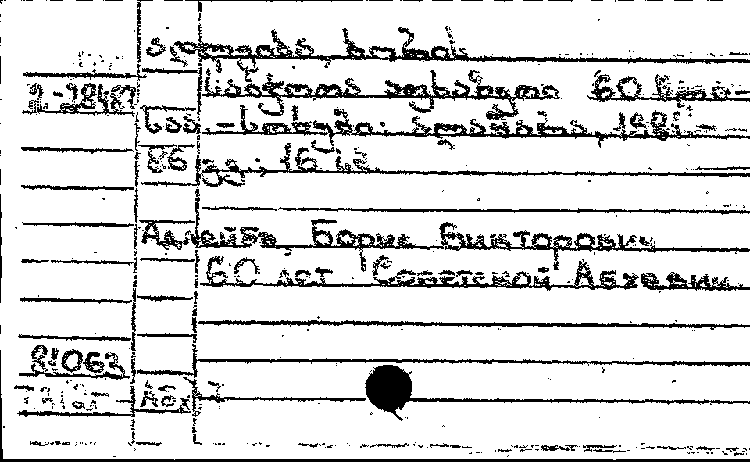 ადლეიბა, ბორის
საბჭოთა აფხაზეთი 60 წლი-
საა. -სოხუმი: ალაშარა, 1981.-
86 გვ.; 16 სმ.
Адлейба, Борис Викторович
60 лет Советской Абхазии.
81063